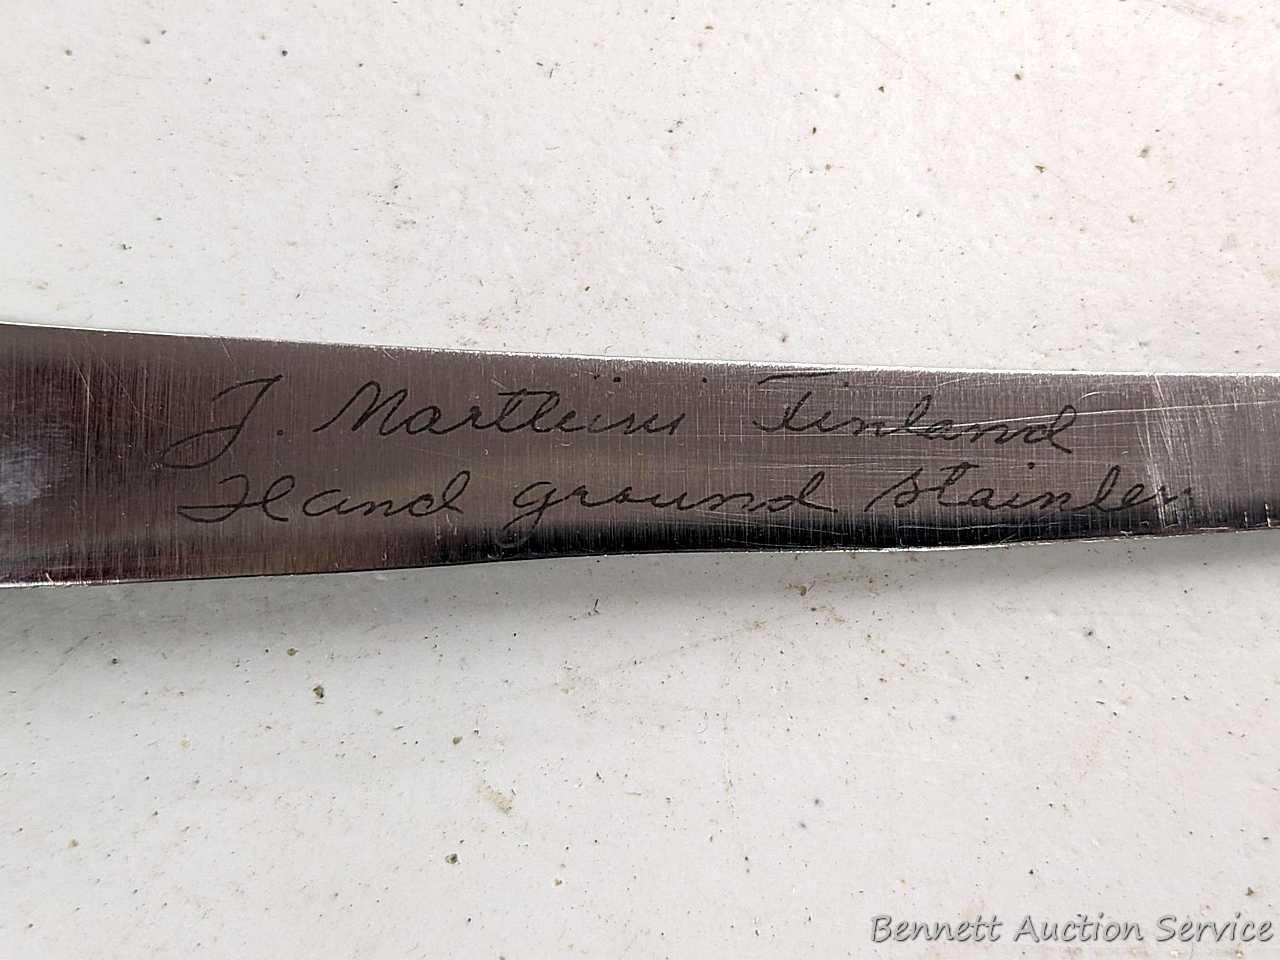 J. Marttiini Finland
Hand ground stainless
Bennett Auction Service